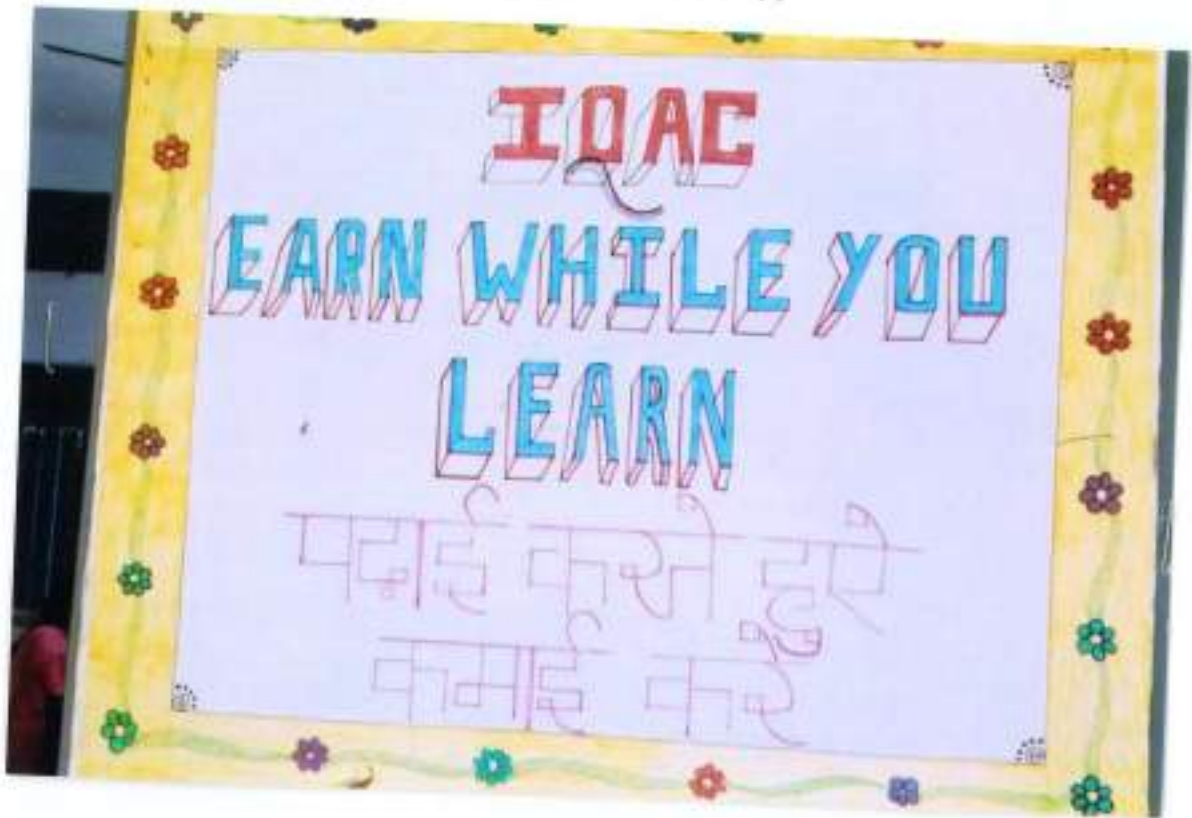 IQAC
EARN WHILE YOU
LEARN
पढ़ाई करते हुए
कमाई करे